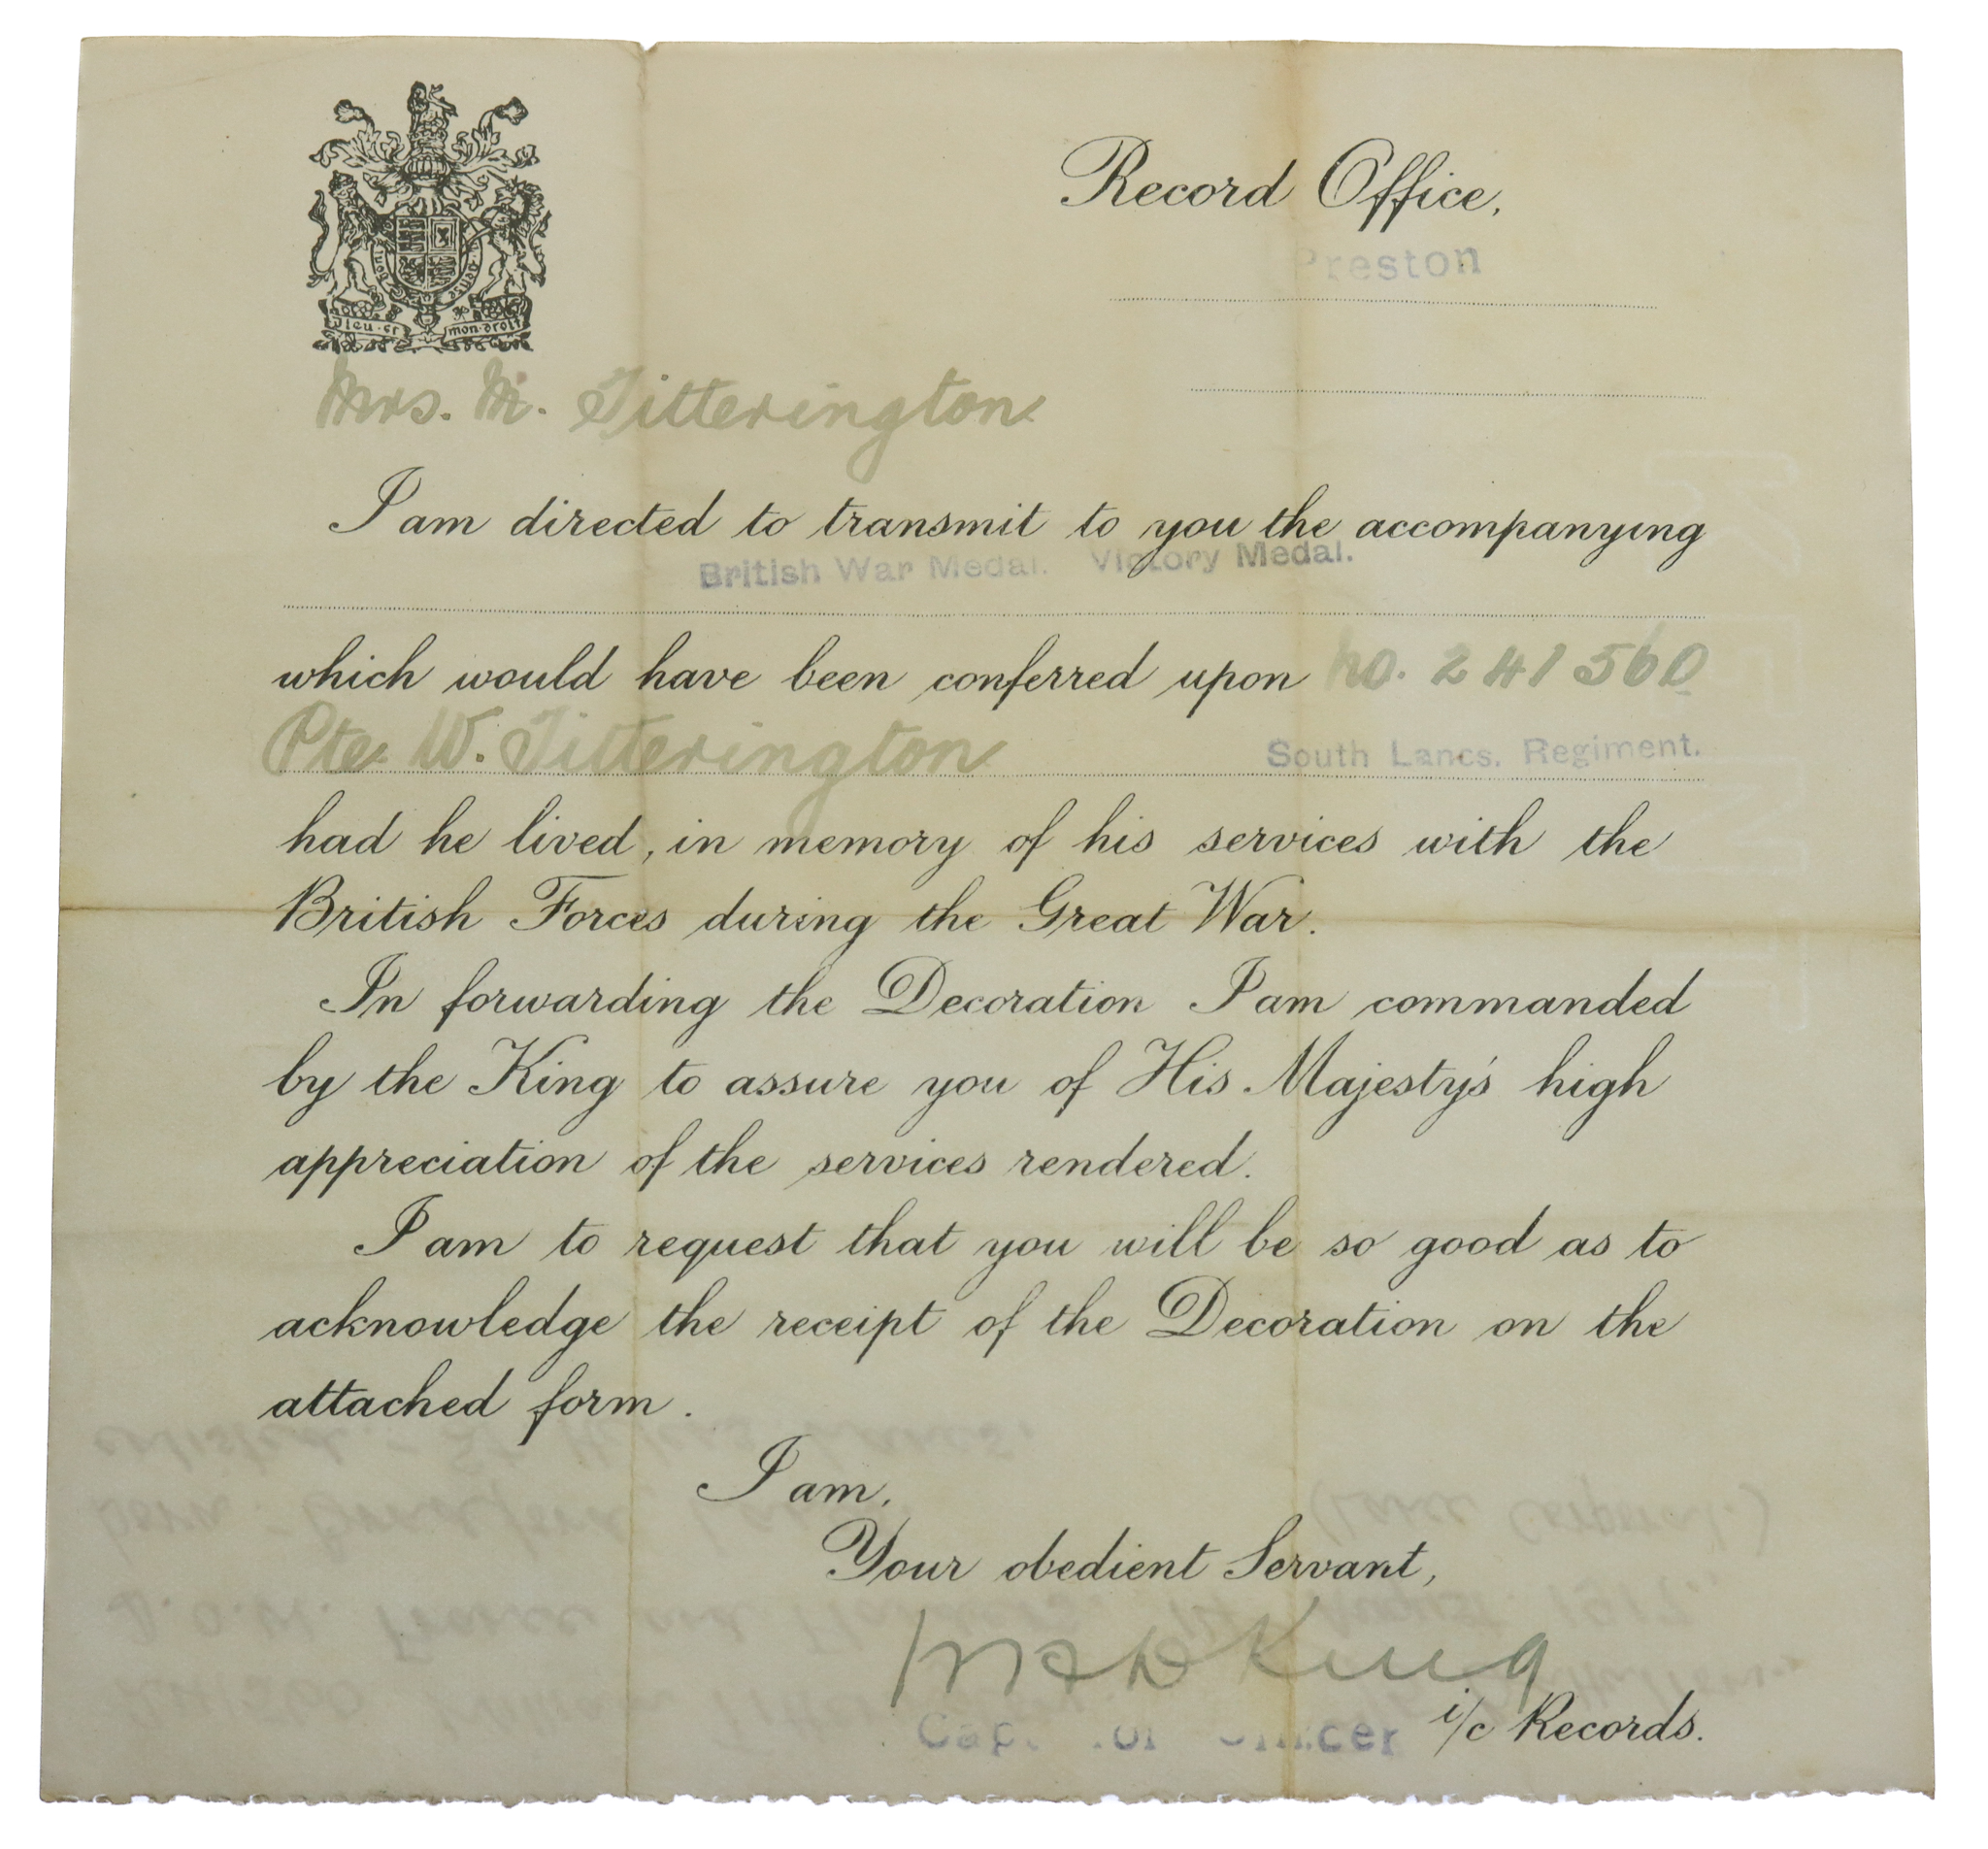 Record Office,
Preston
Dieu et mon droit
Mrs. M. Titterington
I am directed to transmit to you the accompanying
British War Medal. Victory Medal.
which would have been conferred upon No. 241560
Pte. W. Titterington South Lancs. Regiment.
had he lived, in memory of his services with the
British Forces during the Great War.
In forwarding the Decoration I am commanded
by the King to assure you of His Majesty's high
appreciation of the services rendered.
I am to request that you will be so good as to
acknowledge the receipt of the Decoration on the
attached form.
I am,
Your obedient Servant,
King
i/c Records.